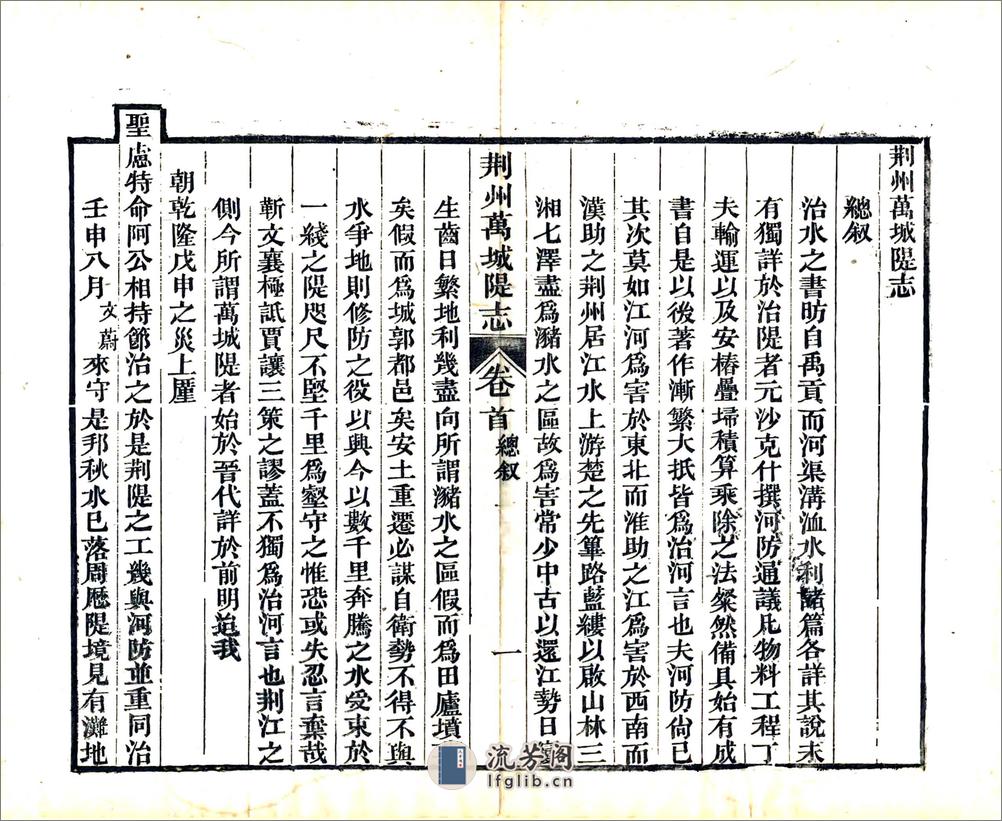 荆州萬城隄志
總叙
治水之書昉自禹貢而河渠溝洫水利諸篇各詳其說未
有獨詳於治隄者元沙克什撰河防通議凡物料工程丁
夫輸運以及安樁疊埽積算乘除之法粲然備具始有成
書自是以後著作漸繁大抵皆爲治河言也夫河防尙已
其次莫如江河爲害於東北而淮助之江爲害於西南而
漢助之荆州居江水上游楚之先篳路藍縷以啟山林三
湘七澤盡爲瀦水之區故爲害常少中古以還江勢日
荆州萬城隄志 卷首 總叙 一
生齒日繁地利幾盡向所謂瀦水之區假而爲田廬墳
矣假而爲城郭都邑矣安土重遷必謀自衛勢不得不與
水爭地則修防之役以興今以數千里奔騰之水受束於
一綫之隄咫尺不堅千里爲壑守之惟恐或失忍言棄哉
靳文襄極詆賈讓三策之謬蓋不獨爲治河言也荆江之
側今所謂萬城隄者始於晉代詳於前明迨我
朝乾隆戊申之災上厪
聖慮特命阿公相持節治之於是荆隄之工幾與河防並重同治
壬申八月文蔚來守是邦秋水已落周歷隄境見有灘地
流芳閣
lfglib.cn